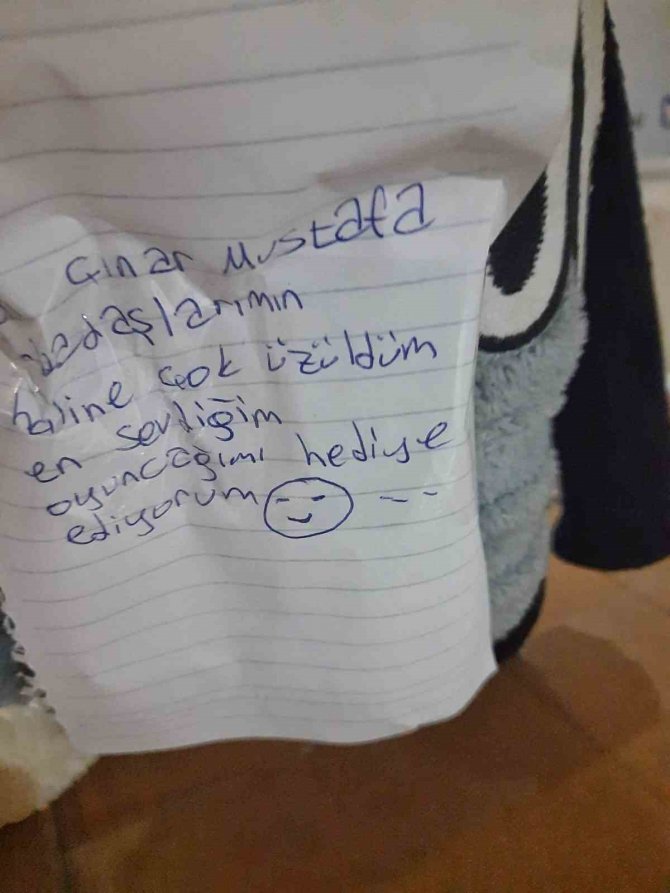 Çınar Mustafa
haline çok üzüldüm
en sevdiğim
oyuncağımı hediye
ediyorum